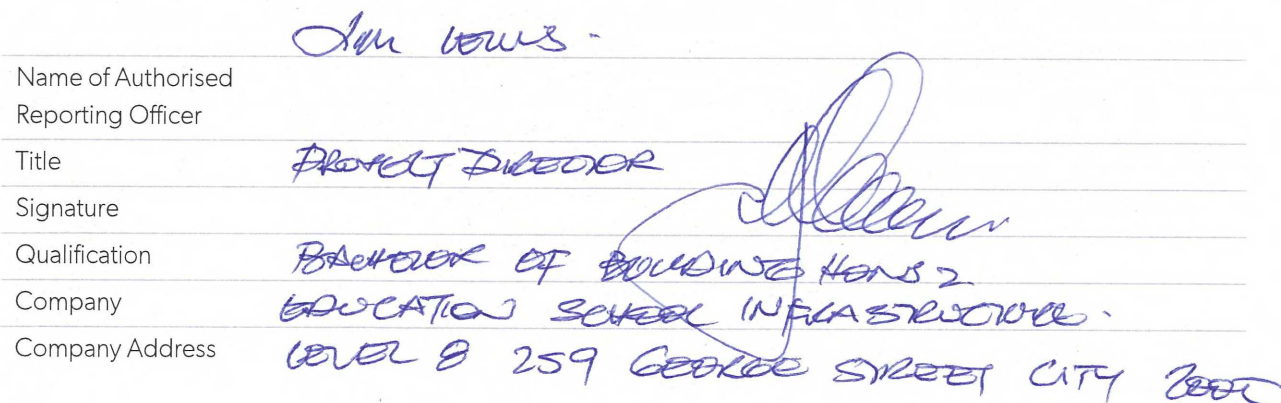 LEWIS.
Name of Authorised
Reporting Officer
Title PROJECT DIRECTOR
Signature
Qualification BACHELOR OF BUILDING HONS 2
Company EDUCATION SCHOOL INFRASTRUCTURE.
Company Address LEVEL 8 259 GEORGE STREET CITY